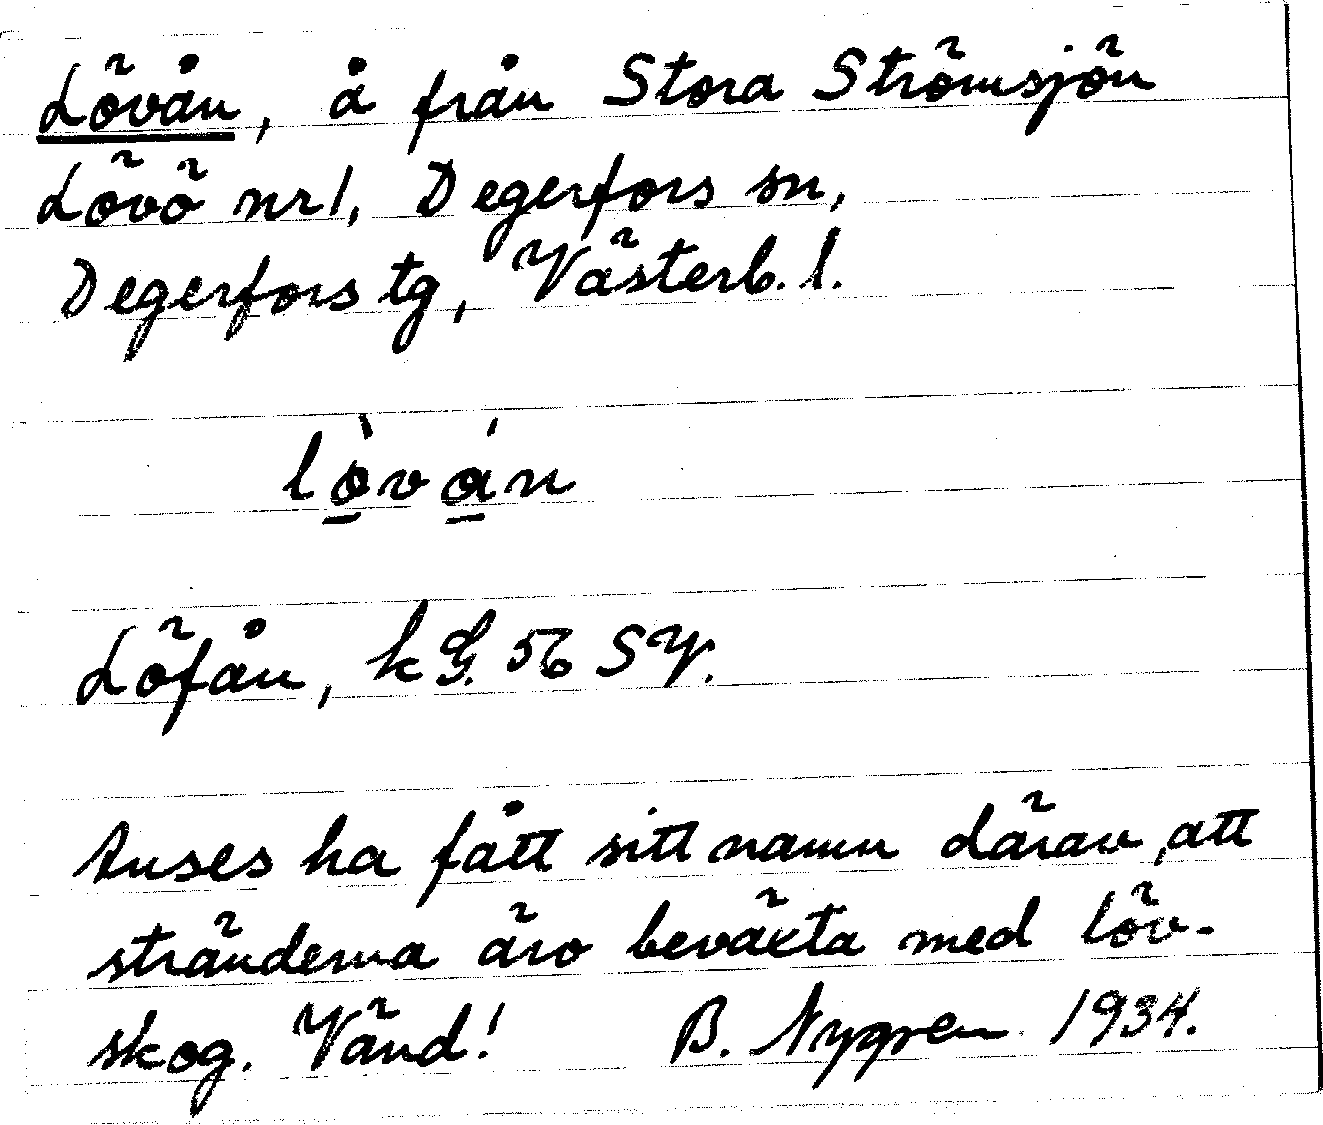 Lövån, å från Stora Strömsjön
Lövö nr 1, Degerfors sn,
Degerfors tg, Västerb. l.
lø̀ván
Löfån, k G. 56 SV.
Anses ha fått sitt namn därav, att
stränderna äro beväxta med löv-
skog. Vänd! B. Nygren 1934.